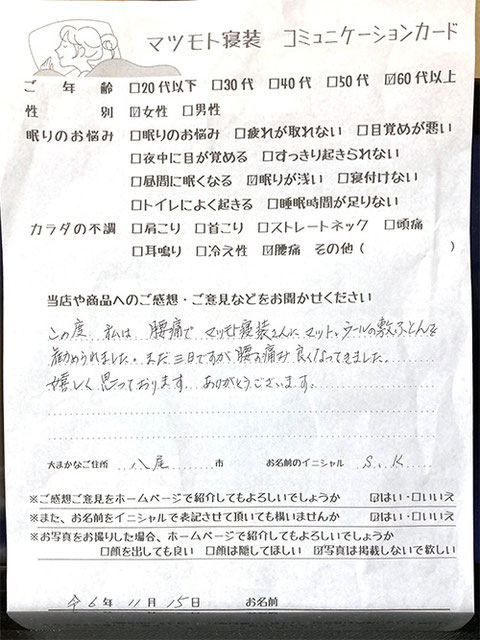 マツモト寝装 コミュニケーションカード
ご年齢 □20代以下 □30代 □40代 □50代 ☑60代以上
性別 ☑女性 □男性
眠りのお悩み □眠りのお悩み □疲れが取れない □目覚めが悪い
□夜中に目が覚める □すっきり起きられない
□昼間に眠くなる ☑眠りが浅い □寝付けない
□トイレによく起きる □睡眠時間が足りない
カラダの不調 □肩こり □首こり □ストレートネック □頭痛
□耳鳴り □冷え性 ☑腰痛 その他( )
当店や商品へのご感想・ご意見などをお聞かせください
この度、私は 腰痛で マツモト寝装さんに マット、ウールの敷ふとんを
勧められました。まだ三日ですが 腰の痛み 良くなってきました。
嬉しく 思っております。ありがとうございます。
大まかなご住所 八尾 市 お名前のイニシャル S.K
※ご感想ご意見をホームページで紹介してもよろしいでしょうか ☑はい・□いいえ
※また、お名前をイニシャルで表記させて頂いても構いませんか ☑はい・□いいえ
※お写真をお撮りした場合、ホームページで紹介してもよろしいでしょうか
□顔を出しても良い □顔は隠してほしい ☑写真は掲載しないで欲しい
令6年 11月 15日 お名前